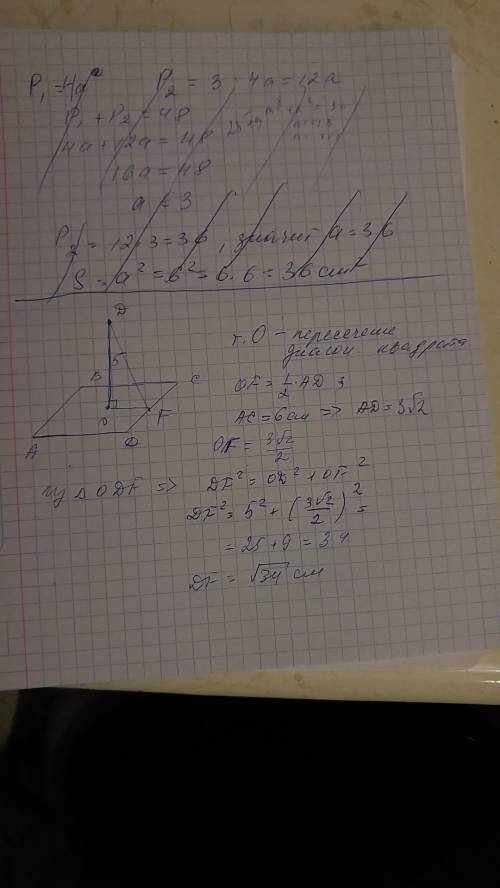 P₁ = 4a
P₂ = 3 · 4a = 12a
P₁ + P₂ = 48
4a + 12a = 48
16a = 48
a = 3
P₂ = 12·3 = 36, значит a = 36
S = a² = 6² = 6·6 = 36 см²
D
5
B
C
O
F
A
D
т. O – пересечение
диагон. квадрата
OF = 1/2 · AD
AC = 6 см => AD = 3√2
OF = 3√2/2
из △ ODF => DF² = OD² + OF²
DF² = 5² + (3√2/2)² =
= 25 + 9 = 34
DF = √34 см